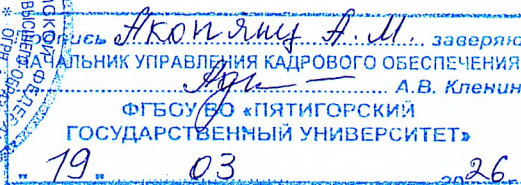 Подпись Акопянц А.М. заверяю
НАЧАЛЬНИК УПРАВЛЕНИЯ КАДРОВОГО ОБЕСПЕЧЕНИЯ
А.В. Кленин
ФГБОУ ВО «ПЯТИГОРСКИЙ
ГОСУДАРСТВЕННЫЙ УНИВЕРСИТЕТ»
" 19 " 03 2026 г.